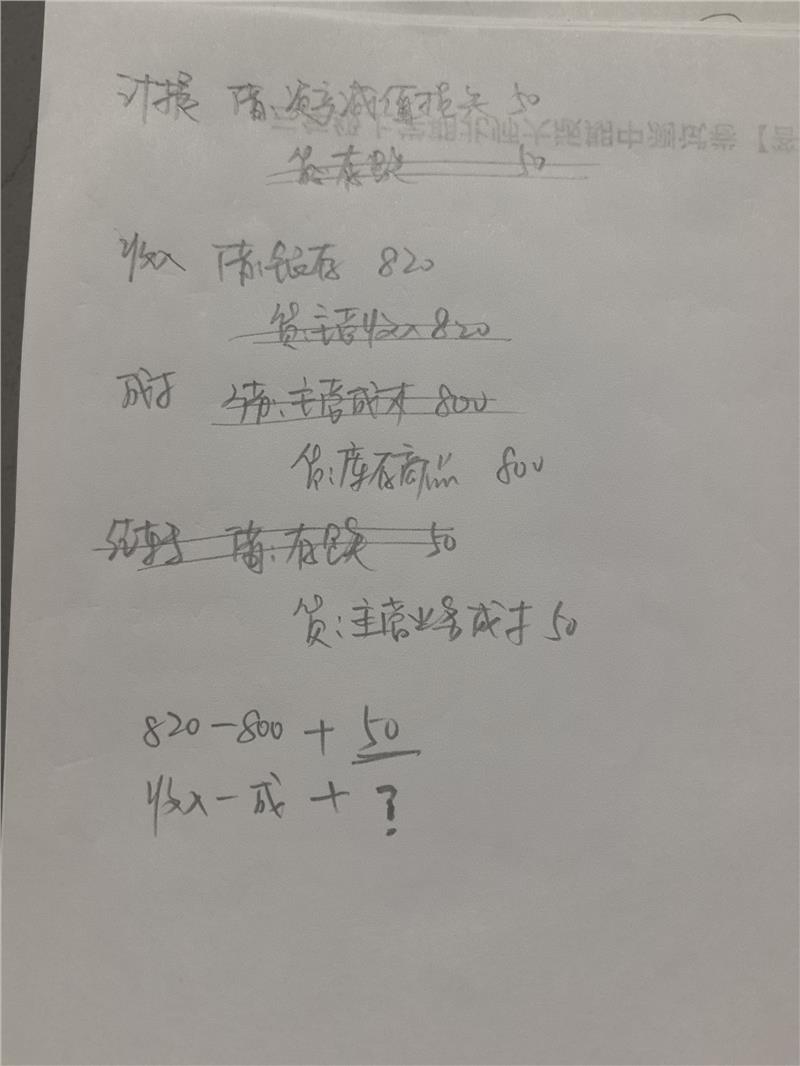 计提 借:资产减值损失 50
贷:存跌 50
收入 借:银存 820
贷:主营收入 820
成本 借:主营成本 800
贷:库存商品 800
结转 借:存跌 50
贷:主营业务成本 50
820-800+50
收入-成+?